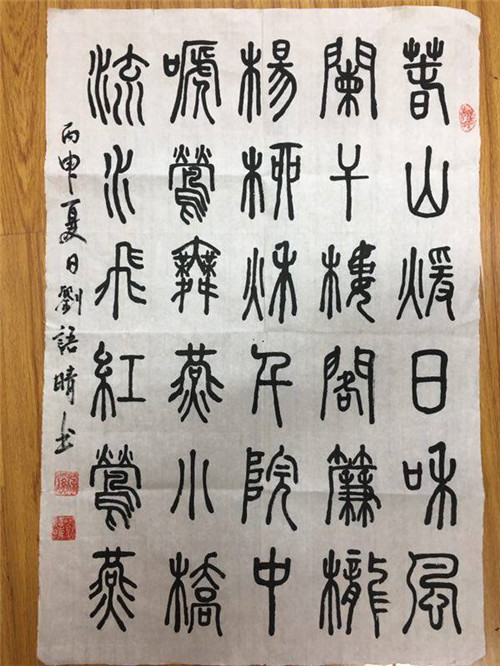 春山煖日和風
闌干樓閣簾櫳
楊柳秋千院中
嗁鶯舞燕小橋
流水飛紅鶯燕
丙申夏日劉語晴书